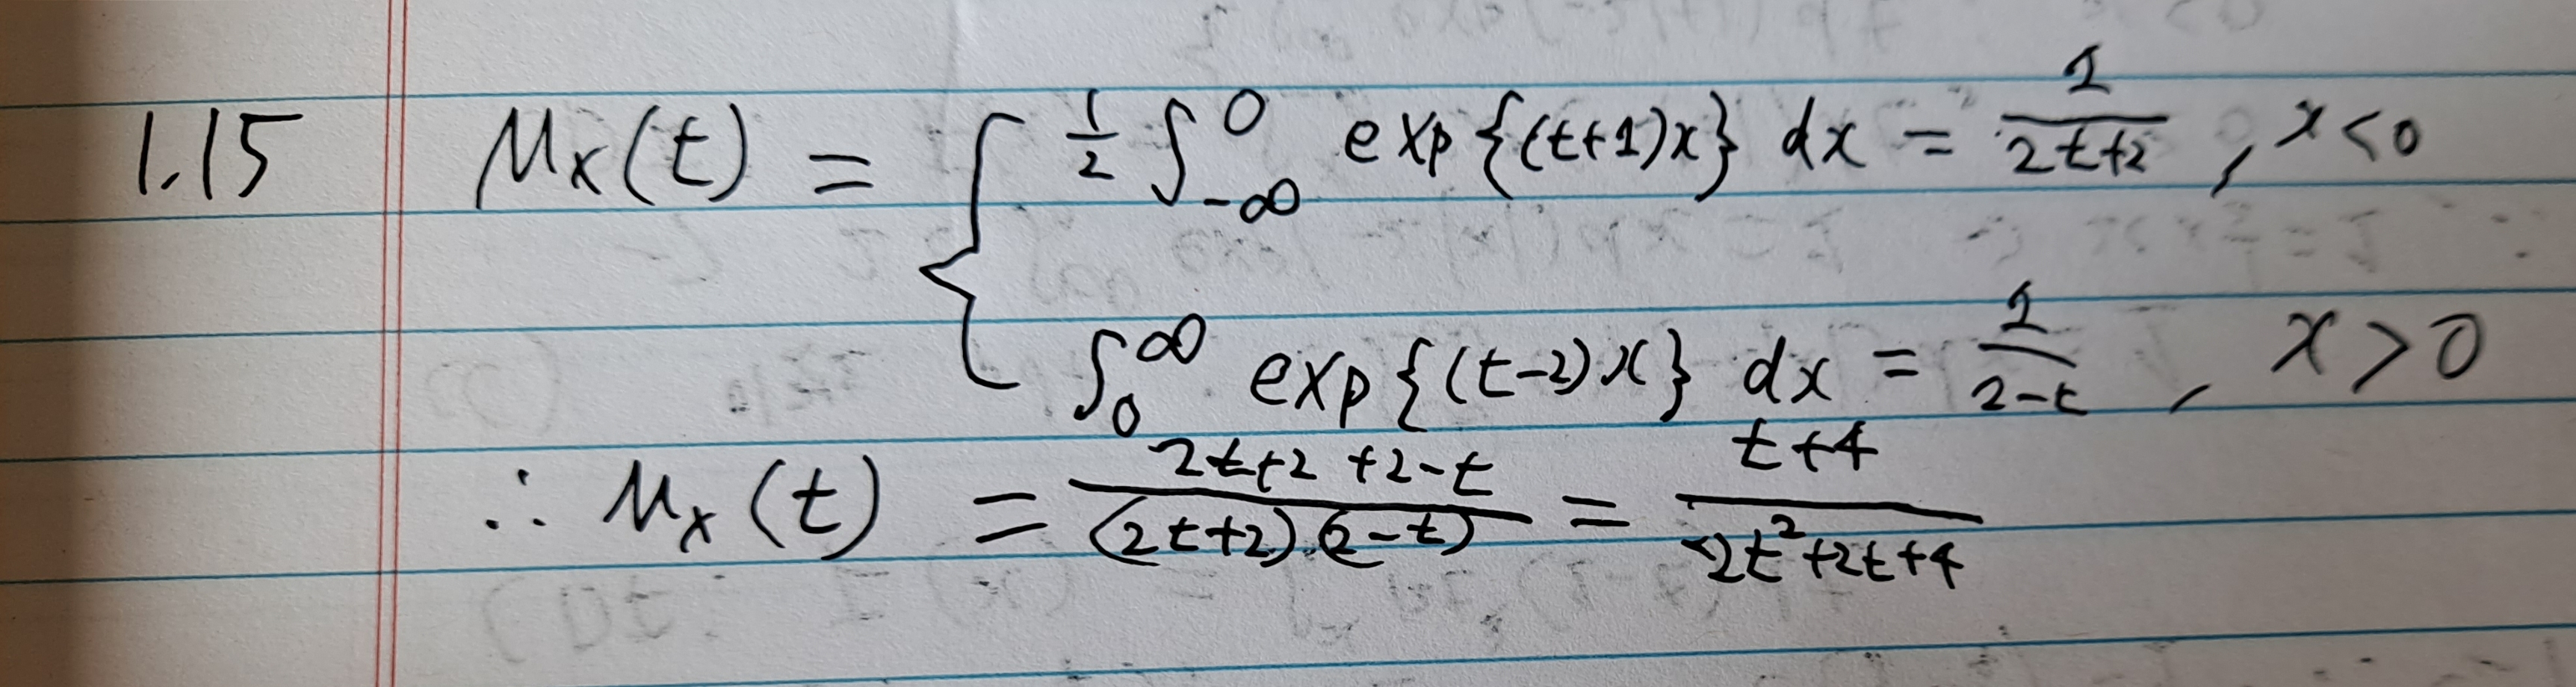 1.15 Mx(t) = { 1/2 ∫_{-∞}^{0} exp{(t+1)x} dx = 1/(2t+2) , x<0
∫_{0}^{∞} exp{(t-2)x} dx = 1/(2-t) , x>0
∴ Mx(t) = (2t+2+2-t)/((2t+2)(2-t)) = (t+4)/(-2t²+2t+4)